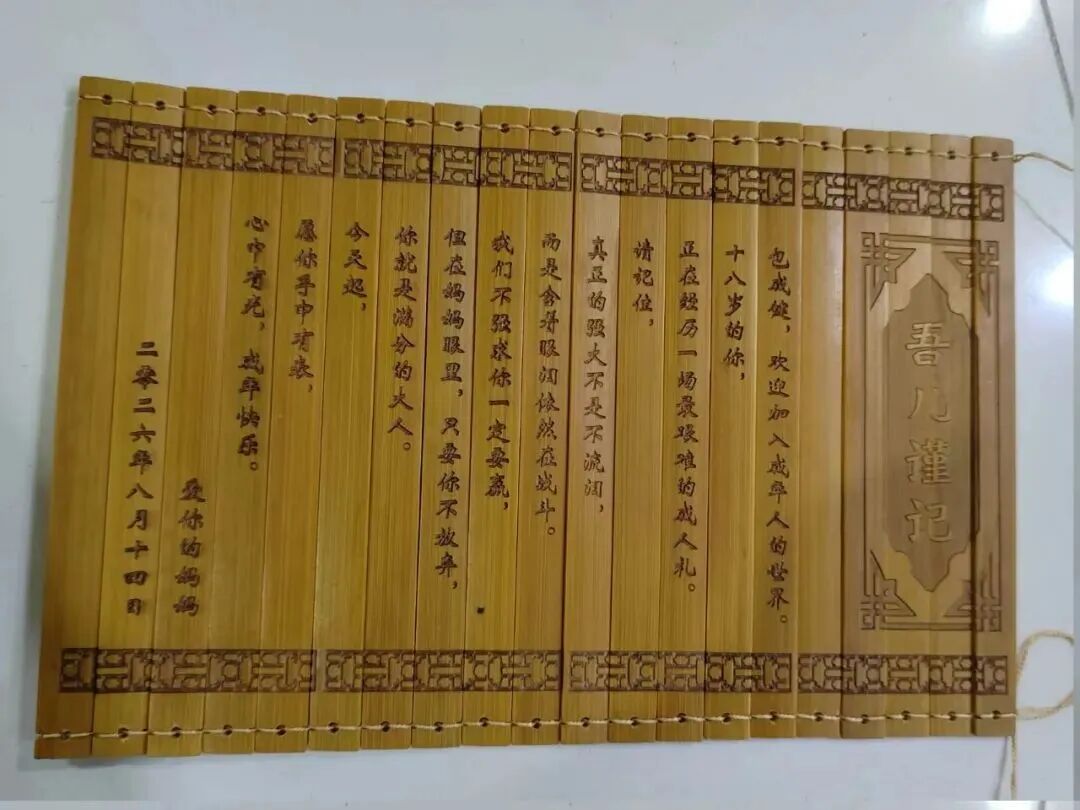 吾儿谨记
包成健，欢迎加入成年人的世界。
十八岁的你，
正在经历一场最艰难的成人礼。
请记住，
真正的强大不是不流泪，
而是含着眼泪依然在战斗。
我们不强求你一定要赢，
但在妈妈眼里，只要你不放弃，
你就是满分的大人。
今天起，
愿你手中有表，
心中有光，成年快乐。
爱你的妈妈
二零二六年八月十四日